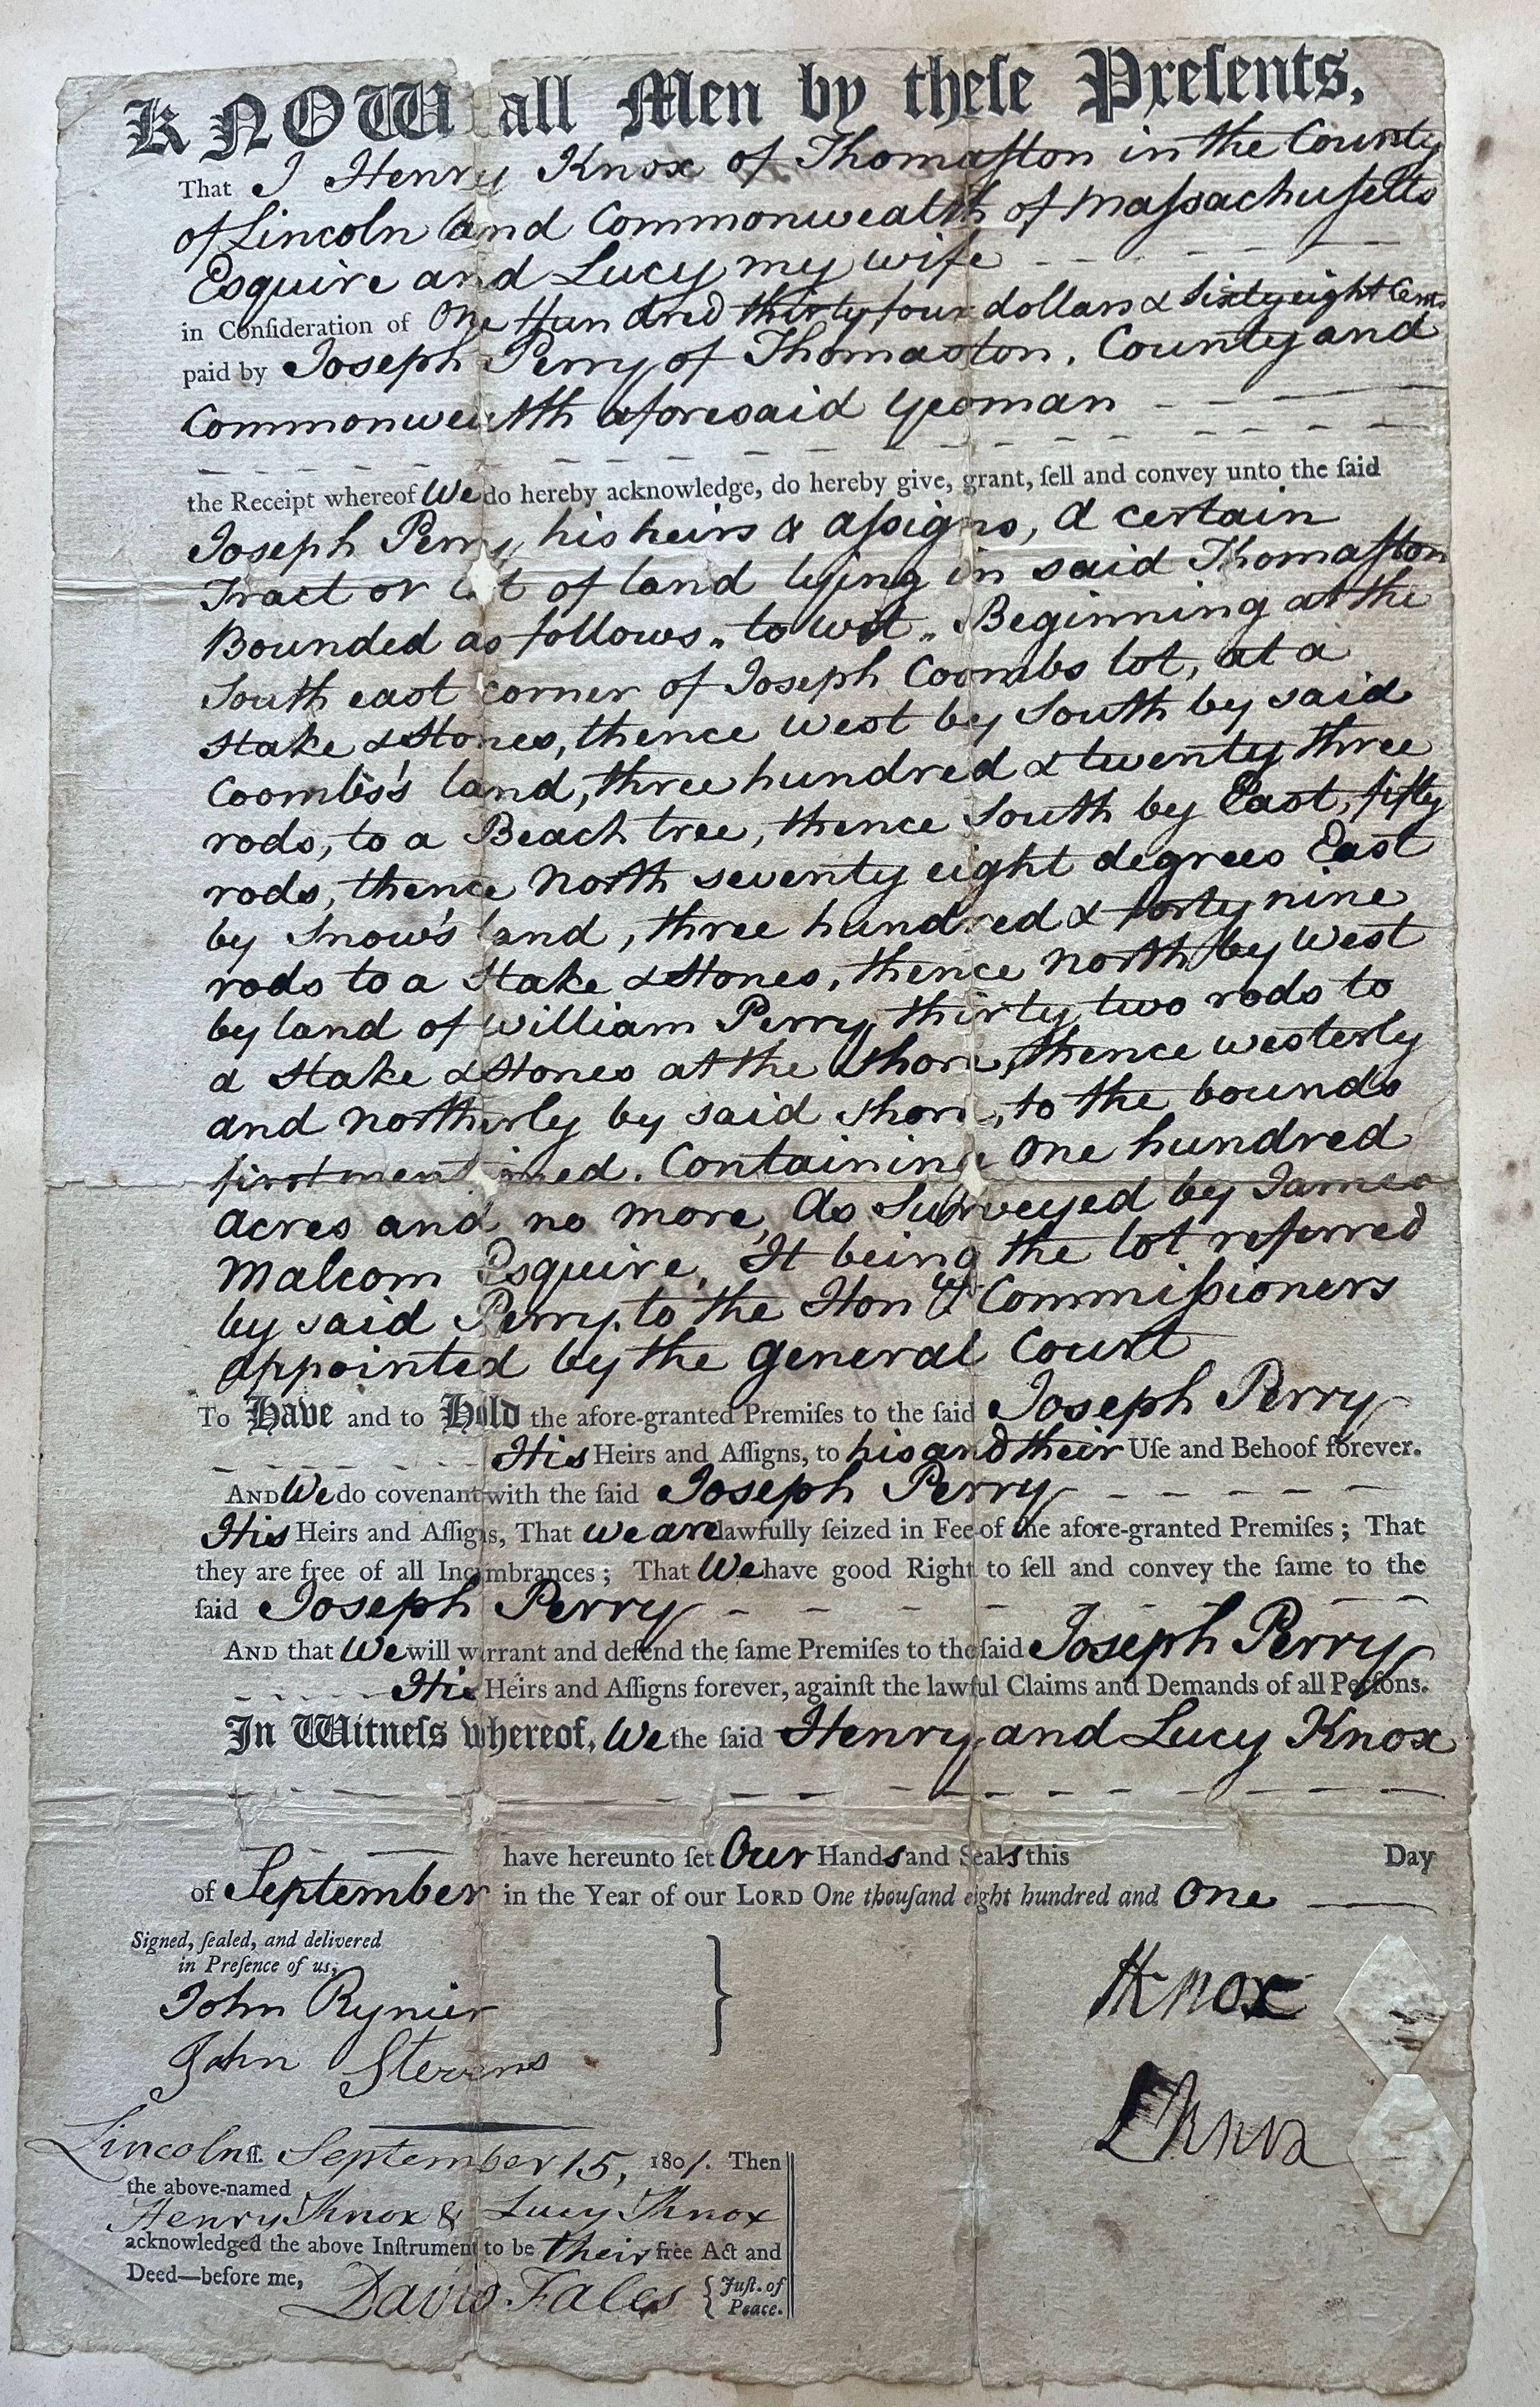 KNOW all Men by theſe Preſents,
That I Henry Knox of Thomaſton in the County
of Lincoln and Commonwealth of Maſsachuſetts
Esquire and Lucy my wife
in Conſideration of One Hundred thirty four dollars & Sixty eight Cents
paid by Joseph Perry of Thomaston, County and
Commonwealth aforesaid Yeoman
the Receipt whereof We do hereby acknowledge, do hereby give, grant, ſell and convey unto the ſaid
Joseph Perry, his heirs & aſsigns, A certain
Tract or lot of land lying in said Thomaſton
Bounded as follows, to wit, Beginning at the
South east corner of Joseph Coombs lot, at a
Stake & Stones, thence west by South by said
Coombs's land, three hundred & twenty three
rods, to a Beach tree, thence South by East, fifty
rods, thence North seventy eight degrees East
by Snow's land, three hundred & forty nine
rods to a Stake & Stones, thence north by West
by land of William Perry, thirty two rods to
a Stake & Stones at the Shore, thence westerly
and northerly by said shore, to the bounds
first mentioned. Containing One hundred
acres and no more, As Surveyed by James
Malcom Esquire, It being the lot referred
by said Perry, to the Honble Commiſsioners
appointed by the General Court
To Have and to Hold the afore-granted Premiſes to the ſaid Joseph Perry
His Heirs and Aſſigns, to his and their Uſe and Behoof forever.
AND We do covenant with the ſaid Joseph Perry
His Heirs and Aſſigns, That we are lawfully ſeized in Fee of the afore-granted Premiſes; That
they are free of all Incumbrances; That We have good Right to ſell and convey the ſame to the
ſaid Joseph Perry
AND that We will warrant and defend the ſame Premiſes to the ſaid Joseph Perry
His Heirs and Aſſigns forever, againſt the lawful Claims and Demands of all Perſons.
In Witneſs whereof, We the ſaid Henry and Lucy Knox
have hereunto ſet Our Hands and Seals this Day
of September in the Year of our LORD One thouſand eight hundred and One
Signed, ſealed, and delivered
in Preſence of us,
John Rynier
John Stevens
HKnox
LKnox
Lincoln ſſ. September 15, 1801. Then
the above-named
Henry Knox & Lucy Knox
acknowledged the above Inſtrument to be their free Act and
Deed—before me, David Fales { Juſt. of
Peace.